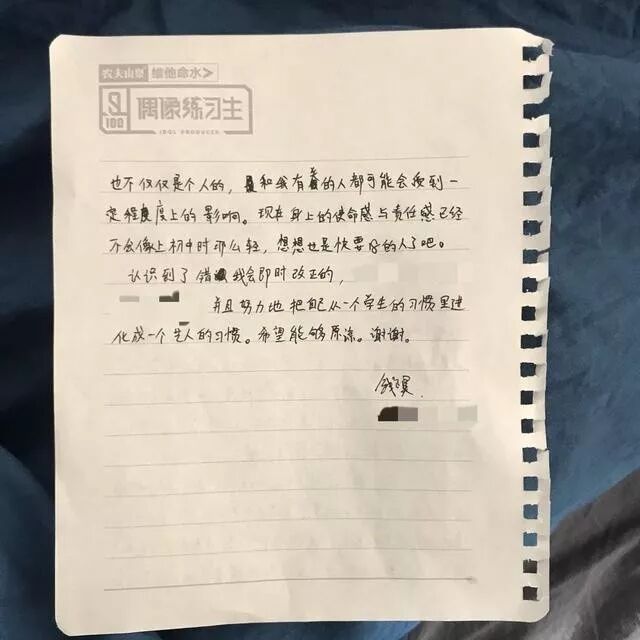 农夫山泉 维他命水
S 100 偶像练习生
IDOL PRODUCER
也不仅仅是个人的，和我有着的人都可能会受到一
定程度上的影响。现在身上的使命感与责任感已经
不会像上初中时那么轻，想想也是快要好的人了吧。
认识到了错我会即时改正的，
并且努力地把自己从一个学生的习惯里进
化成一个先人的习惯。希望能够原谅。谢谢。